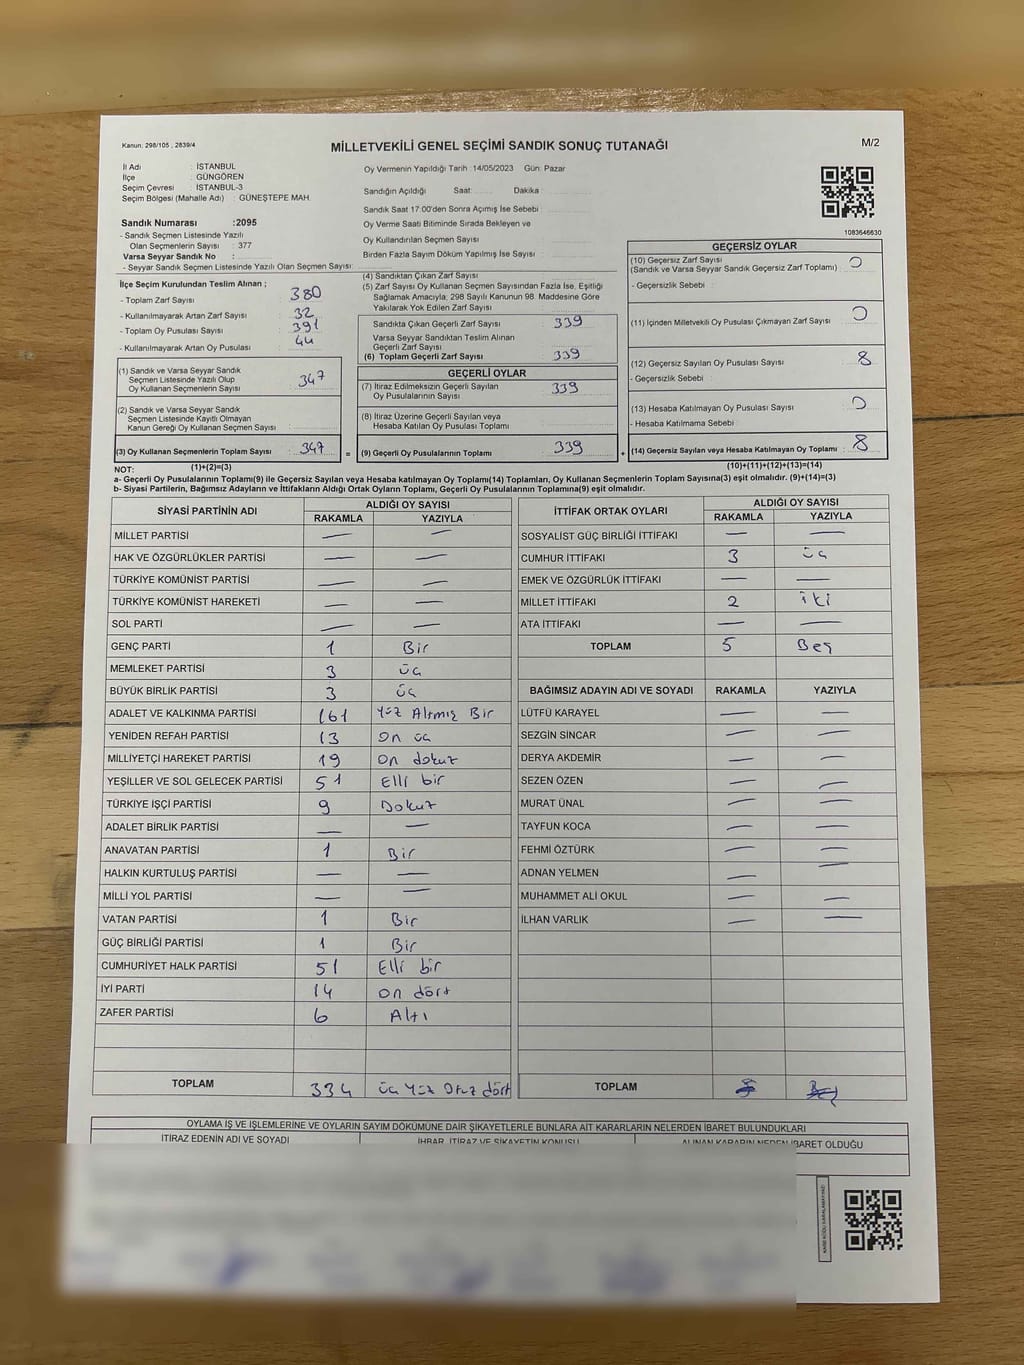 Kanun: 298/105 , 2839/4
MİLLETVEKİLİ GENEL SEÇİMİ SANDIK SONUÇ TUTANAĞI
M/2
İl Adı : İSTANBUL
İlçe : GÜNGÖREN
Seçim Çevresi : İSTANBUL-3
Seçim Bölgesi (Mahalle Adı) : GÜNEŞTEPE MAH.
Oy Vermenin Yapıldığı Tarih : 14/05/2023 Gün: Pazar
Sandığın Açıldığı Saat: Dakika :
Sandık Saat 17:00'den Sonra Açımış İse Sebebi :
Oy Verme Saati Bitiminde Sırada Bekleyen ve
Oy Kullandırılan Seçmen Sayısı
Birden Fazla Sayım Döküm Yapılmış İse Sayısı :
1083646630
Sandık Numarası :2095
- Sandık Seçmen Listesinde Yazılı
Olan Seçmenlerin Sayısı : 377
Varsa Seyyar Sandık No :
- Seyyar Sandık Seçmen Listesinde Yazılı Olan Seçmen Sayısı:
İlçe Seçim Kurulundan Teslim Alınan ;
- Toplam Zarf Sayısı : 380
- Kullanılmayarak Artan Zarf Sayısı : 32
- Toplam Oy Pusulası Sayısı : 391
- Kullanılmayarak Artan Oy Pusulası : 44
(1) Sandık ve Varsa Seyyar Sandık
Seçmen Listesinde Yazılı Olup
Oy Kullanan Seçmenlerin Sayısı : 347
(2) Sandık ve Varsa Seyyar Sandık
Seçmen Listesinde Kayıtlı Olmayan
Kanun Gereği Oy Kullanan Seçmen Sayısı :
(3) Oy Kullanan Seçmenlerin Toplam Sayısı : 347
(1)+(2)=(3)
(4) Sandıktan Çıkan Zarf Sayısı
(5) Zarf Sayısı Oy Kullanan Seçmen Sayısından Fazla İse, Eşitliği
Sağlamak Amacıyla; 298 Sayılı Kanunun 98. Maddesine Göre
Yakılarak Yok Edilen Zarf Sayısı
Sandıkta Çıkan Geçerli Zarf Sayısı : 339
Varsa Seyyar Sandıktan Teslim Alınan
Geçerli Zarf Sayısı
(6) Toplam Geçerli Zarf Sayısı : 339
GEÇERLİ OYLAR
(7) İtiraz Edilmeksizin Geçerli Sayılan
Oy Pusulalarının Sayısı : 339
(8) İtiraz Üzerine Geçerli Sayılan veya
Hesaba Katılan Oy Pusulası Toplamı :
= (9) Geçerli Oy Pusulalarının Toplamı : 339 +
GEÇERSİZ OYLAR
(10) Geçersiz Zarf Sayısı : 0
(Sandık ve Varsa Seyyar Sandık Geçersiz Zarf Toplamı)
- Geçersizlik Sebebi :
(11) İçinden Milletvekili Oy Pusulası Çıkmayan Zarf Sayısı : 0
(12) Geçersiz Sayılan Oy Pusulası Sayısı : 8
- Geçersizlik Sebebi :
(13) Hesaba Katılmayan Oy Pusulası Sayısı : 0
- Hesaba Katılmama Sebebi :
(14) Geçersiz Sayılan veya Hesaba Katılmayan Oy Toplamı : 8
(10)+(11)+(12)+(13)=(14)
NOT:
a- Geçerli Oy Pusulalarının Toplamı(9) ile Geçersiz Sayılan veya Hesaba katılmayan Oy Toplamı(14) Toplamları, Oy Kullanan Seçmenlerin Toplam Sayısına(3) eşit olmalıdır. (9)+(14)=(3)
b- Siyasi Partilerin, Bağımsız Adayların ve İttifakların Aldığı Ortak Oyların Toplamı, Geçerli Oy Pusulalarının Toplamına(9) eşit olmalıdır.
SİYASİ PARTİNİN ADI ALDIĞI OY SAYISI
RAKAMLA YAZIYLA
MİLLET PARTİSİ — —
HAK VE ÖZGÜRLÜKLER PARTİSİ — —
TÜRKİYE KOMÜNİST PARTİSİ — —
TÜRKİYE KOMÜNİST HAREKETİ — —
SOL PARTİ — —
GENÇ PARTİ 1 Bir
MEMLEKET PARTİSİ 3 üç
BÜYÜK BİRLİK PARTİSİ 3 üç
ADALET VE KALKINMA PARTİSİ 161 Yüz Altmış Bir
YENİDEN REFAH PARTİSİ 13 On üç
MİLLİYETÇİ HAREKET PARTİSİ 19 On dokuz
YEŞİLLER VE SOL GELECEK PARTİSİ 51 Elli bir
TÜRKİYE İŞÇİ PARTİSİ 9 Dokuz
ADALET BİRLİK PARTİSİ — —
ANAVATAN PARTİSİ 1 Bir
HALKIN KURTULUŞ PARTİSİ — —
MİLLİ YOL PARTİSİ — —
VATAN PARTİSİ 1 Bir
GÜÇ BİRLİĞİ PARTİSİ 1 Bir
CUMHURİYET HALK PARTİSİ 51 Elli bir
İYİ PARTİ 14 On dört
ZAFER PARTİSİ 6 Altı
TOPLAM 334 üç Yüz Otuz dört
İTTİFAK ORTAK OYLARI ALDIĞI OY SAYISI
RAKAMLA YAZIYLA
SOSYALİST GÜÇ BİRLİĞİ İTTİFAKI — —
CUMHUR İTTİFAKI 3 üç
EMEK VE ÖZGÜRLÜK İTTİFAKI — —
MİLLET İTTİFAKI 2 iki
ATA İTTİFAKI — —
TOPLAM 5 Beş
BAĞIMSIZ ADAYIN ADI VE SOYADI RAKAMLA YAZIYLA
LÜTFÜ KARAYEL — —
SEZGİN SİNCAR — —
DERYA AKDEMİR — —
SEZEN ÖZEN — —
MURAT ÜNAL — —
TAYFUN KOCA — —
FEHMİ ÖZTÜRK — —
ADNAN YELMEN — —
MUHAMMET ALİ OKUL — —
İLHAN VARLIK — —
TOPLAM
OYLAMA İŞ VE İŞLEMLERİNE VE OYLARIN SAYIM DÖKÜMÜNE DAİR ŞİKAYETLERLE BUNLARA AİT KARARLARIN NELERDEN İBARET BULUNDUKLARI
İTİRAZ EDENİN ADI VE SOYADI İHBAR, İTİRAZ VE ŞİKAYETİN KONUSU ALINAN KARARIN NEDEN İBARET OLDUĞU